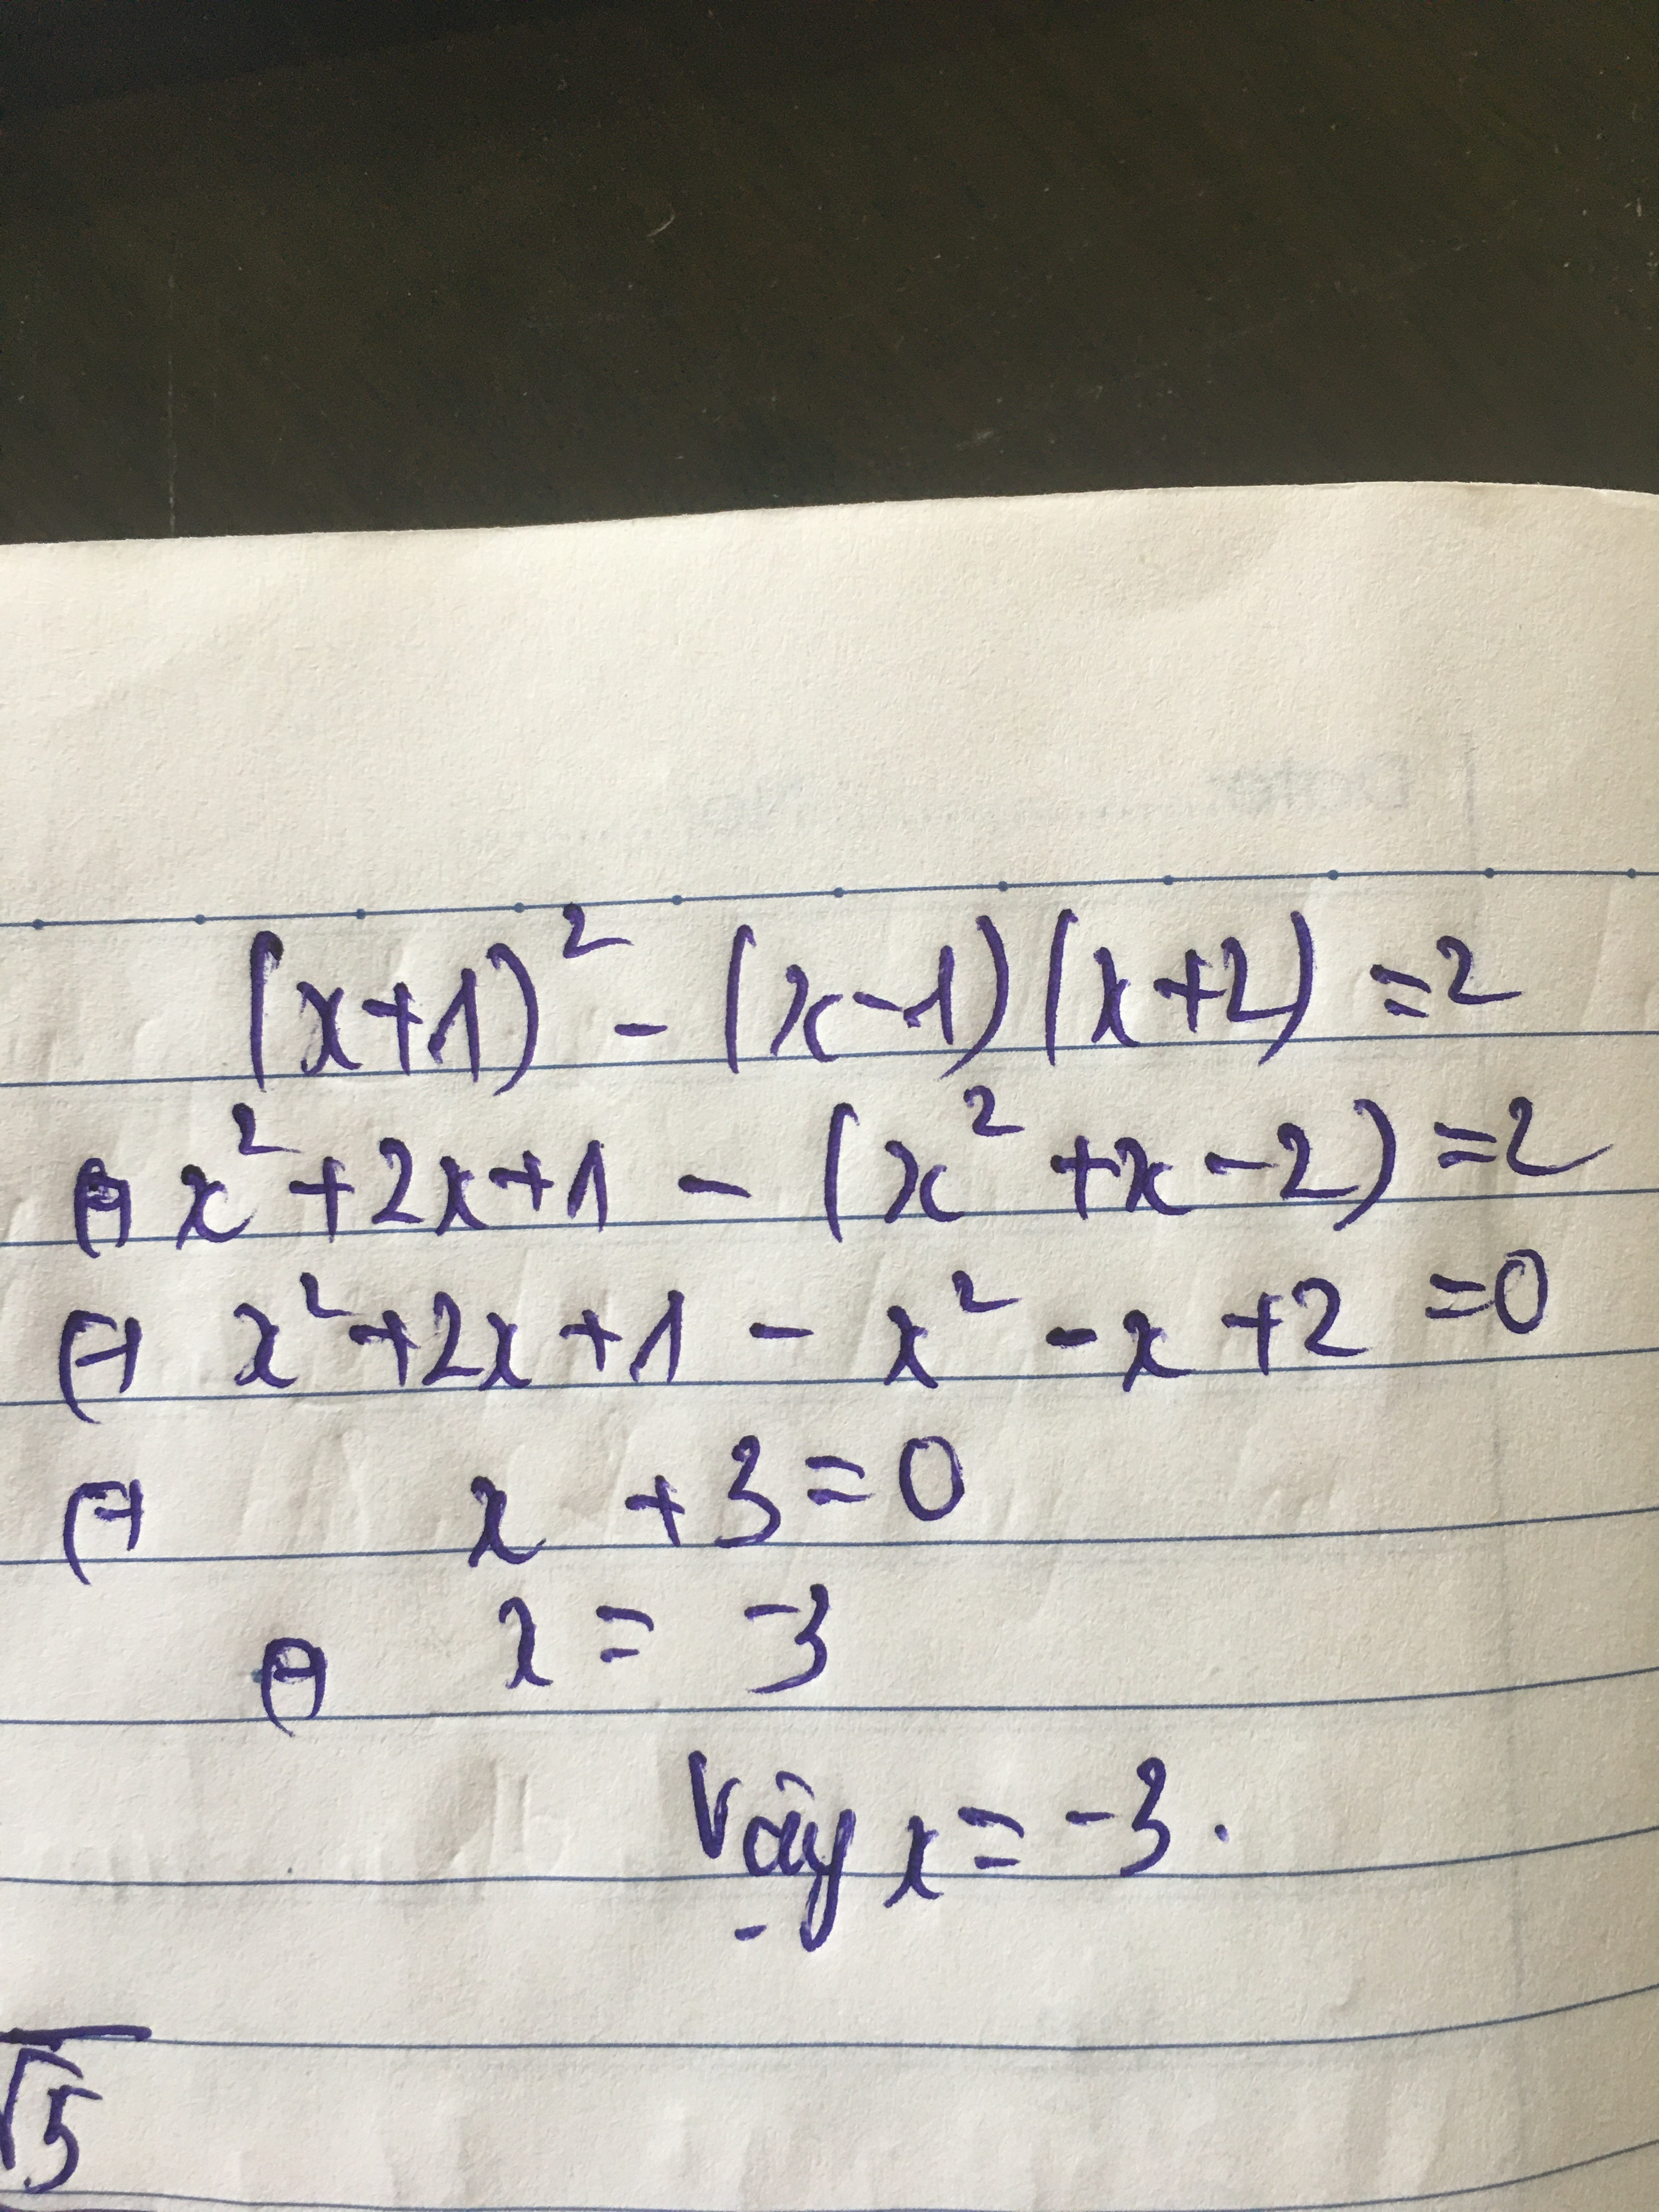 (x+1)² - (x-1)(x+2) = 2
⇔ x² + 2x + 1 - (x² + x - 2) = 2
⇔ x² + 2x + 1 - x² - x + 2 = 0
⇔ x + 3 = 0
⇔ x = -3
Vậy x = -3.
√5